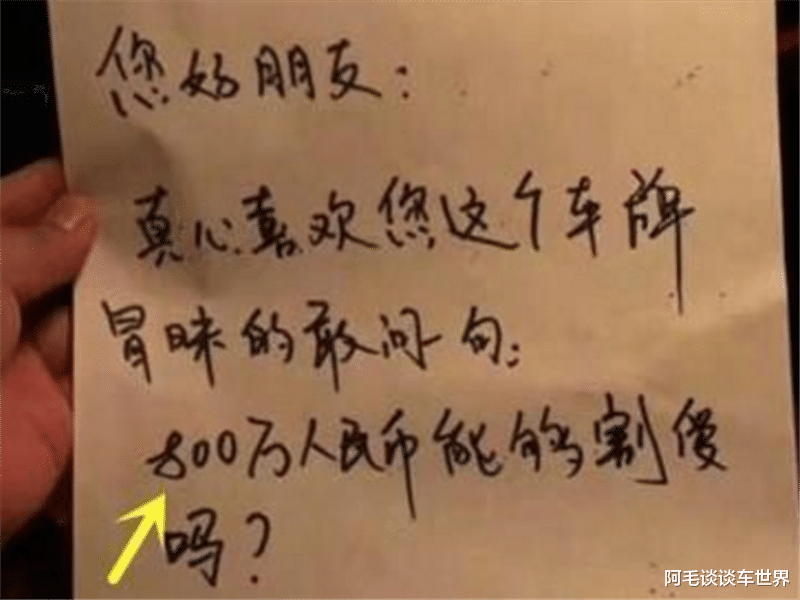 您好朋友：
真心喜欢您这个车牌
冒昧的敢问一句：
800万人民币能够割爱
吗？
阿毛谈谈车世界